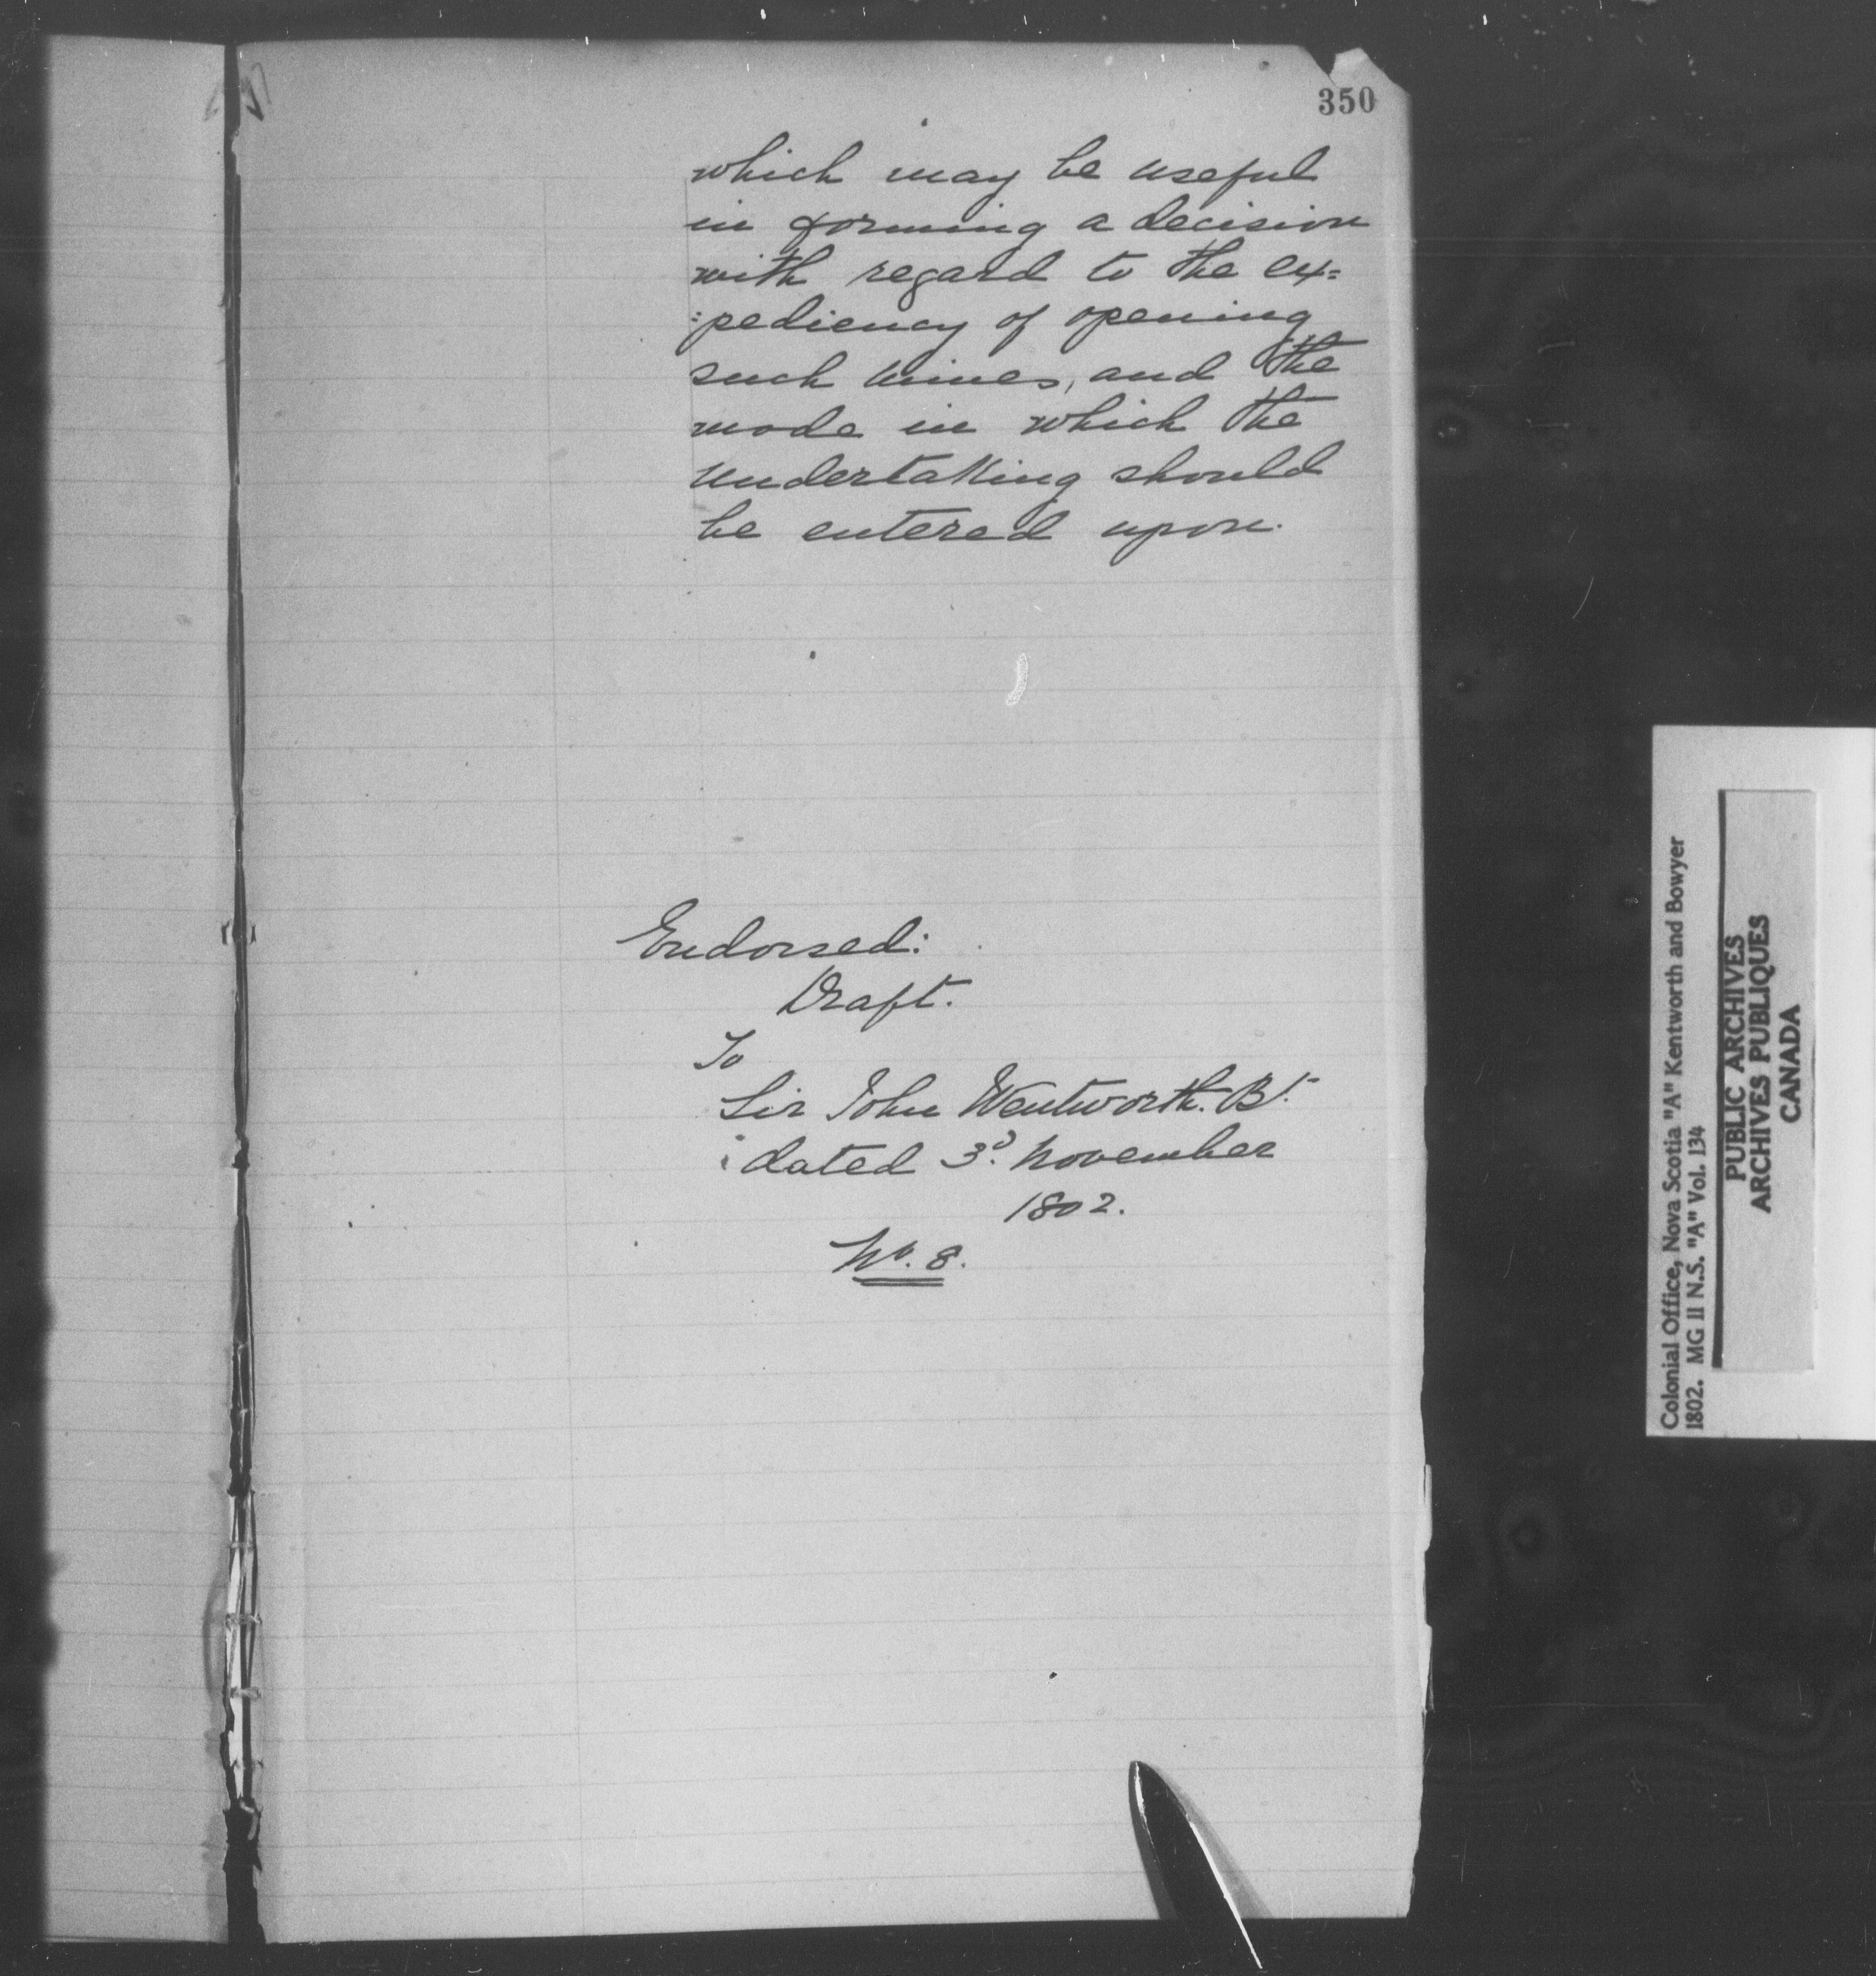 350
which may be useful
in forming a decision
with regard to the ex=
:pediency of opening
such mines, and the
mode in which the
undertaking should
be entered upon.
Endorsed:
Draft.
To
Sir John Wentworth. Bt.
dated 3d. November
1802.
No. 8.
Colonial Office, Nova Scotia "A" Kentworth and Bowyer
1802. MG 11 N.S. "A" Vol. 134
PUBLIC ARCHIVES
ARCHIVES PUBLIQUES
CANADA